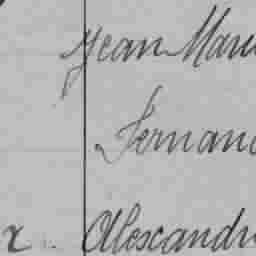 Jean Marie
Fernand
x Alexandre